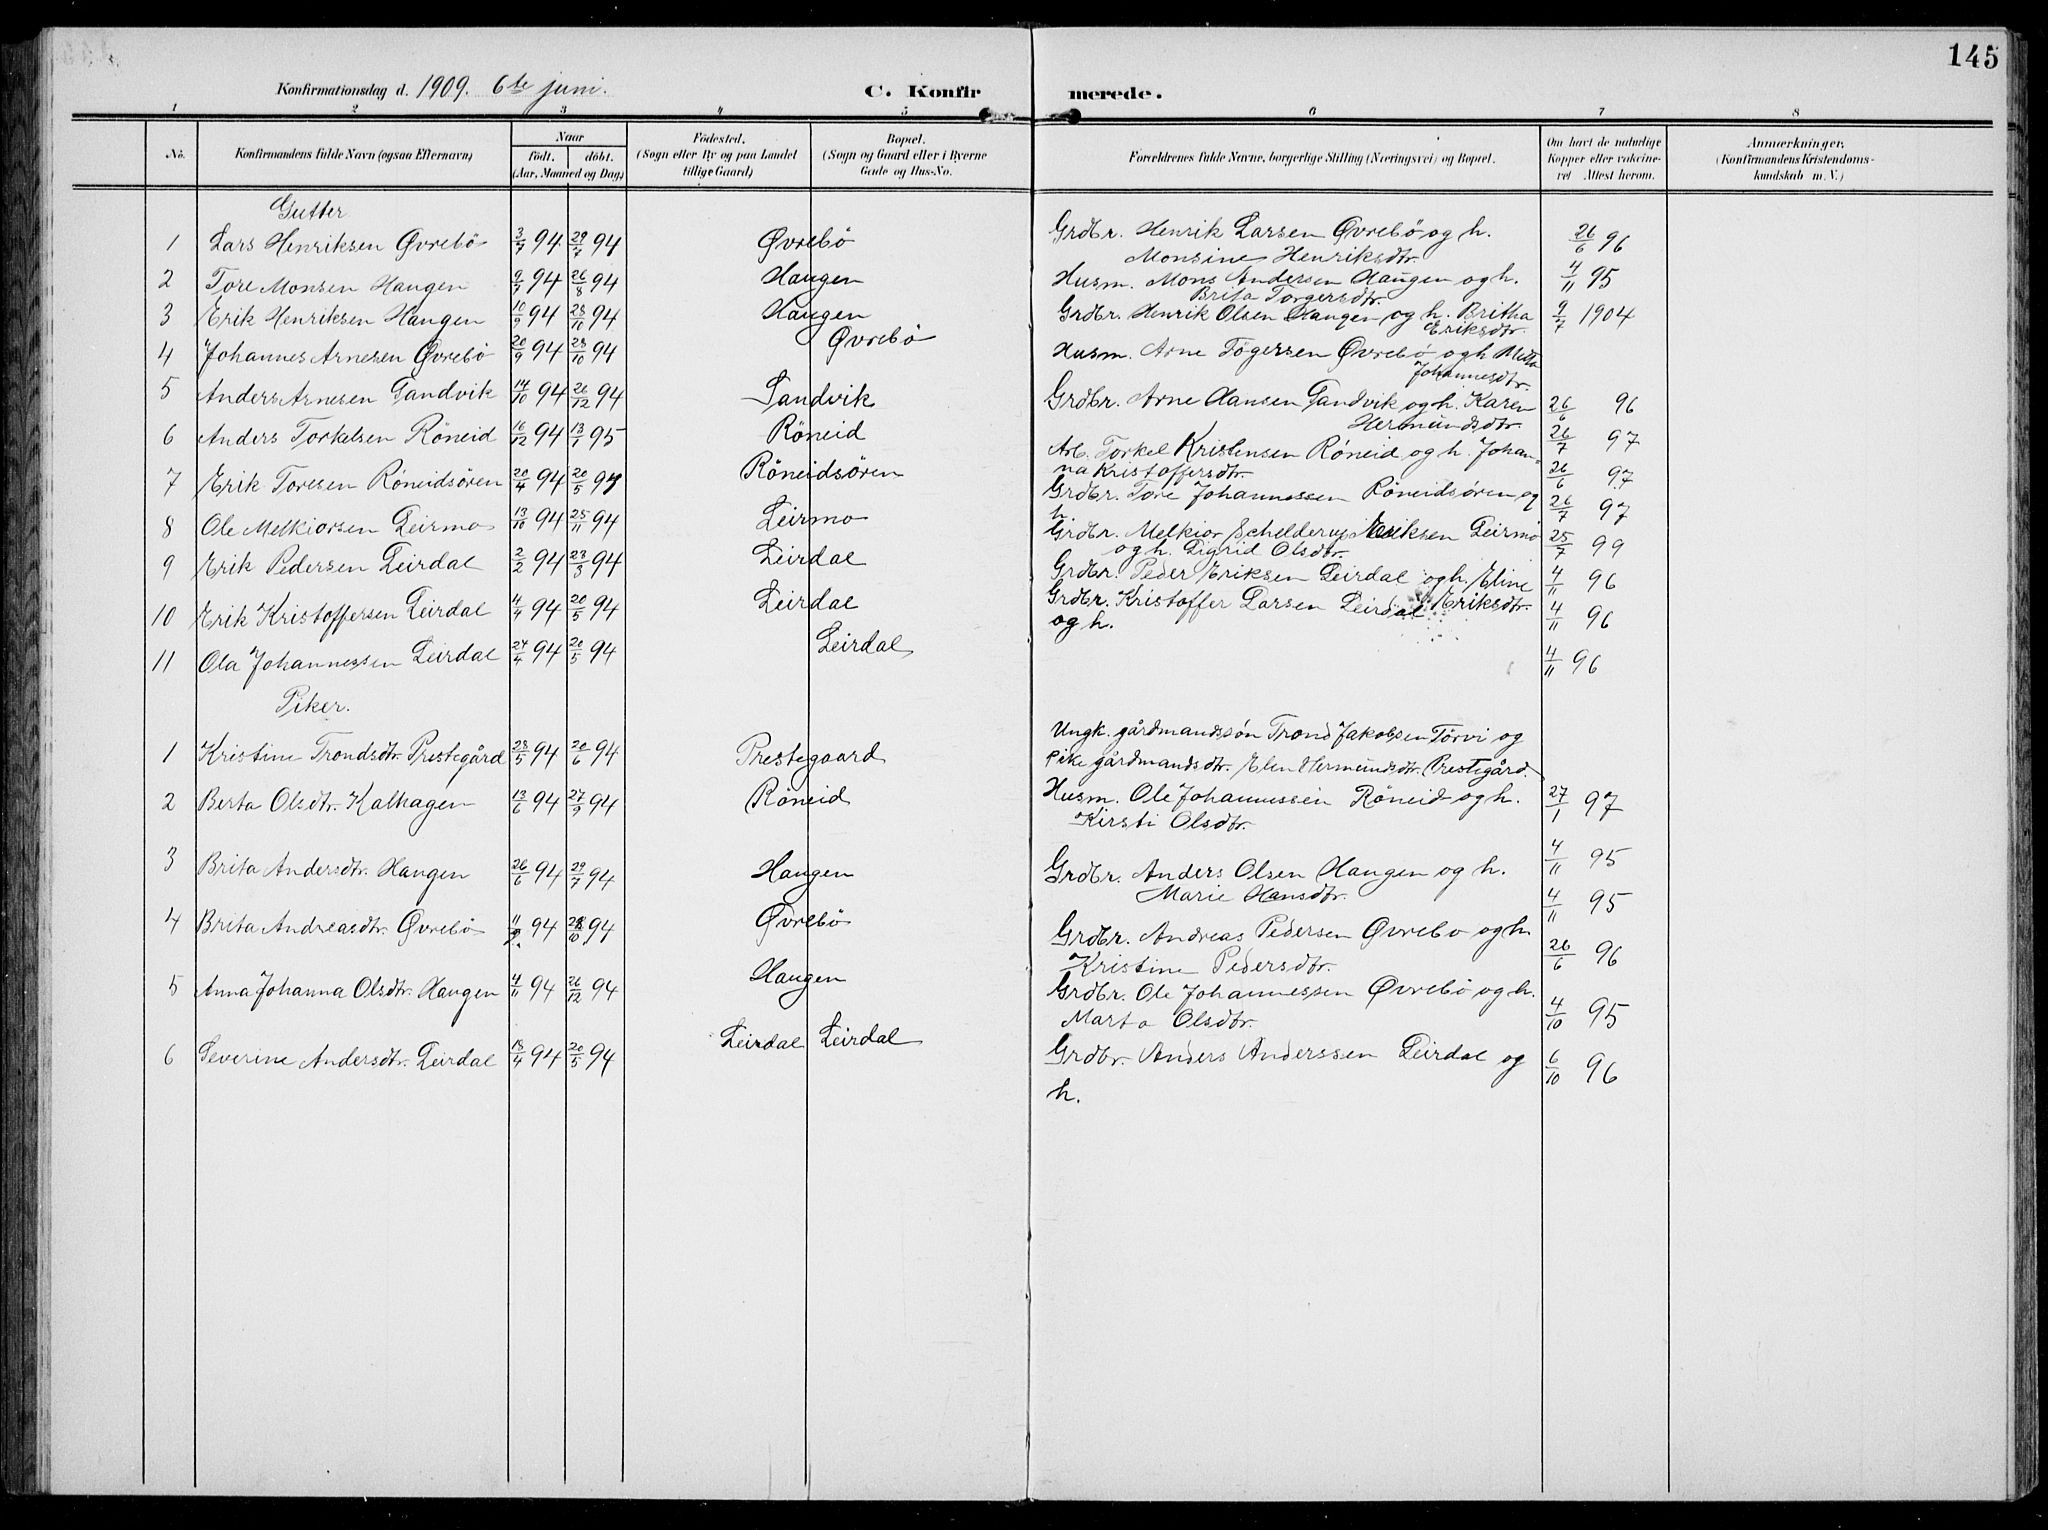 145
Konfirmationsdag d. 1909. 6te juni.
C. Konfirmerede.
1 2 3 4 5 6 7 8
No.
Konfirmandens fulde Navn (ogsaa Efternavn)
Naar
født. døbt.
(Aar, Maaned og Dag)
Födested.
(Sogn eller By og paa Landet
tillige Gaard)
Bopæl.
(Sogn og Gaard eller i Byerne
Gade og Hus-No.
Forældrenes fulde Navne, borgerlige Stilling (Næringsvei) og Bopæl.
Om havt de naturlige
Kopper eller vakcine-
ret Attest herom.
Anmærkninger,
(Konfirmandens Kristendoms-
kundskab m. V.)
Gutter
1 Lars Henriksen Øvrebö 3/7 94 29/7 94 Øvrebö Grdbr. Henrik Larsen Øvrebö og h. 26/6 96
Monsine Henriksdtr.
2 Tore Monsen Haugen 9/7 94 26/8 94 Haugen Husm. Mons Andersen Haugen og h. 4/11 95
Brita Torgersdtr.
3 Erik Henriksen Haugen 10/9 94 28/10 94 Haugen Grdbr. Henrik Olsen Haugen og h. Britha 9/7 1904
Eriksdtr.
4 Johannes Arnesen Øvrebö 20/9 94 28/10 94 Øvrebö Husm. Arne Tögersen Øvrebö og h.
Johannesdtr.
5 Anders Arnesen Sandvik 14/10 94 26/12 94 Sandvik Grdbr. Arne Hansen Sandvik og h. Karen 26/6 96
Hermundsdtr.
6 Anders Torkelsen Röneid 16/12 94 13/1 95 Röneid Arb. Torkel Kristensen Röneid og h. Johan- 26/7 97
na Kristoffersdtr.
7 Erik Toresen Röneidsören 20/4 94 20/5 94 Röneidsören Grdbr. Tore Johannessen Röneidsören og 26/6 97
h.
8 Ole Melkiorsen Leirmo 13/10 94 25/11 94 Leirmo Grdbr. Melkior Schelderup Eriksen Leirmo 26/7 97
og h. Sigrid Olsdtr.
9 Erik Pedersen Leirdal 2/2 94 23/3 94 Leirdal Grdbr. Peder Eriksen Leirdal og h. Eline 25/7 99
Eriksdtr.
10 Erik Kristoffersen Leirdal 4/4 94 20/5 94 Leirdal Grdbr. Kristoffer Larsen Leirdal 4/11 96
og h. 4/11 96
11 Ola Johannessen Leirdal 27/4 94 20/5 94 Leirdal 4/11 96
Piker.
1 Kristine Trondsdtr. Prestegård 28/5 94 20/6 94 Prestegaard Ungk. gårdmandssön Trond Jakobsen Törvi og
Pike gårdmandsdtr. Elen Hermundsdtr. Prestegård.
2 Berta Olsdtr. Kalhagen 13/6 94 27/9 94 Röneid Husm. Ole Johannessen Röneid og h. 27/1 97
Kirsti Olsdtr.
3 Brita Andersdtr. Haugen 26/6 94 29/7 94 Haugen Grdbr. Anders Olsen Haugen og h. 4/11 95
Marie Hansdtr.
4 Brita Andreasdtr. Øvrebö 11/9 94 28/10 94 Øvrebö Grdbr. Andreas Pedersen Øvrebö og h. 4/11 95
Kristine Pedersdtr. 26/6 96
5 Anna Johanna Olsdtr. Haugen 4/11 94 26/12 94 Haugen Grdbr. Ole Johannessen Øvrebö og h.
Marta Olsdtr. 4/10 95
6 Severine Andersdtr. Leirdal 18/4 94 20/5 94 Leirdal Leirdal Grdbr. Anders Anderssen Leirdal og 6/10 96
h.